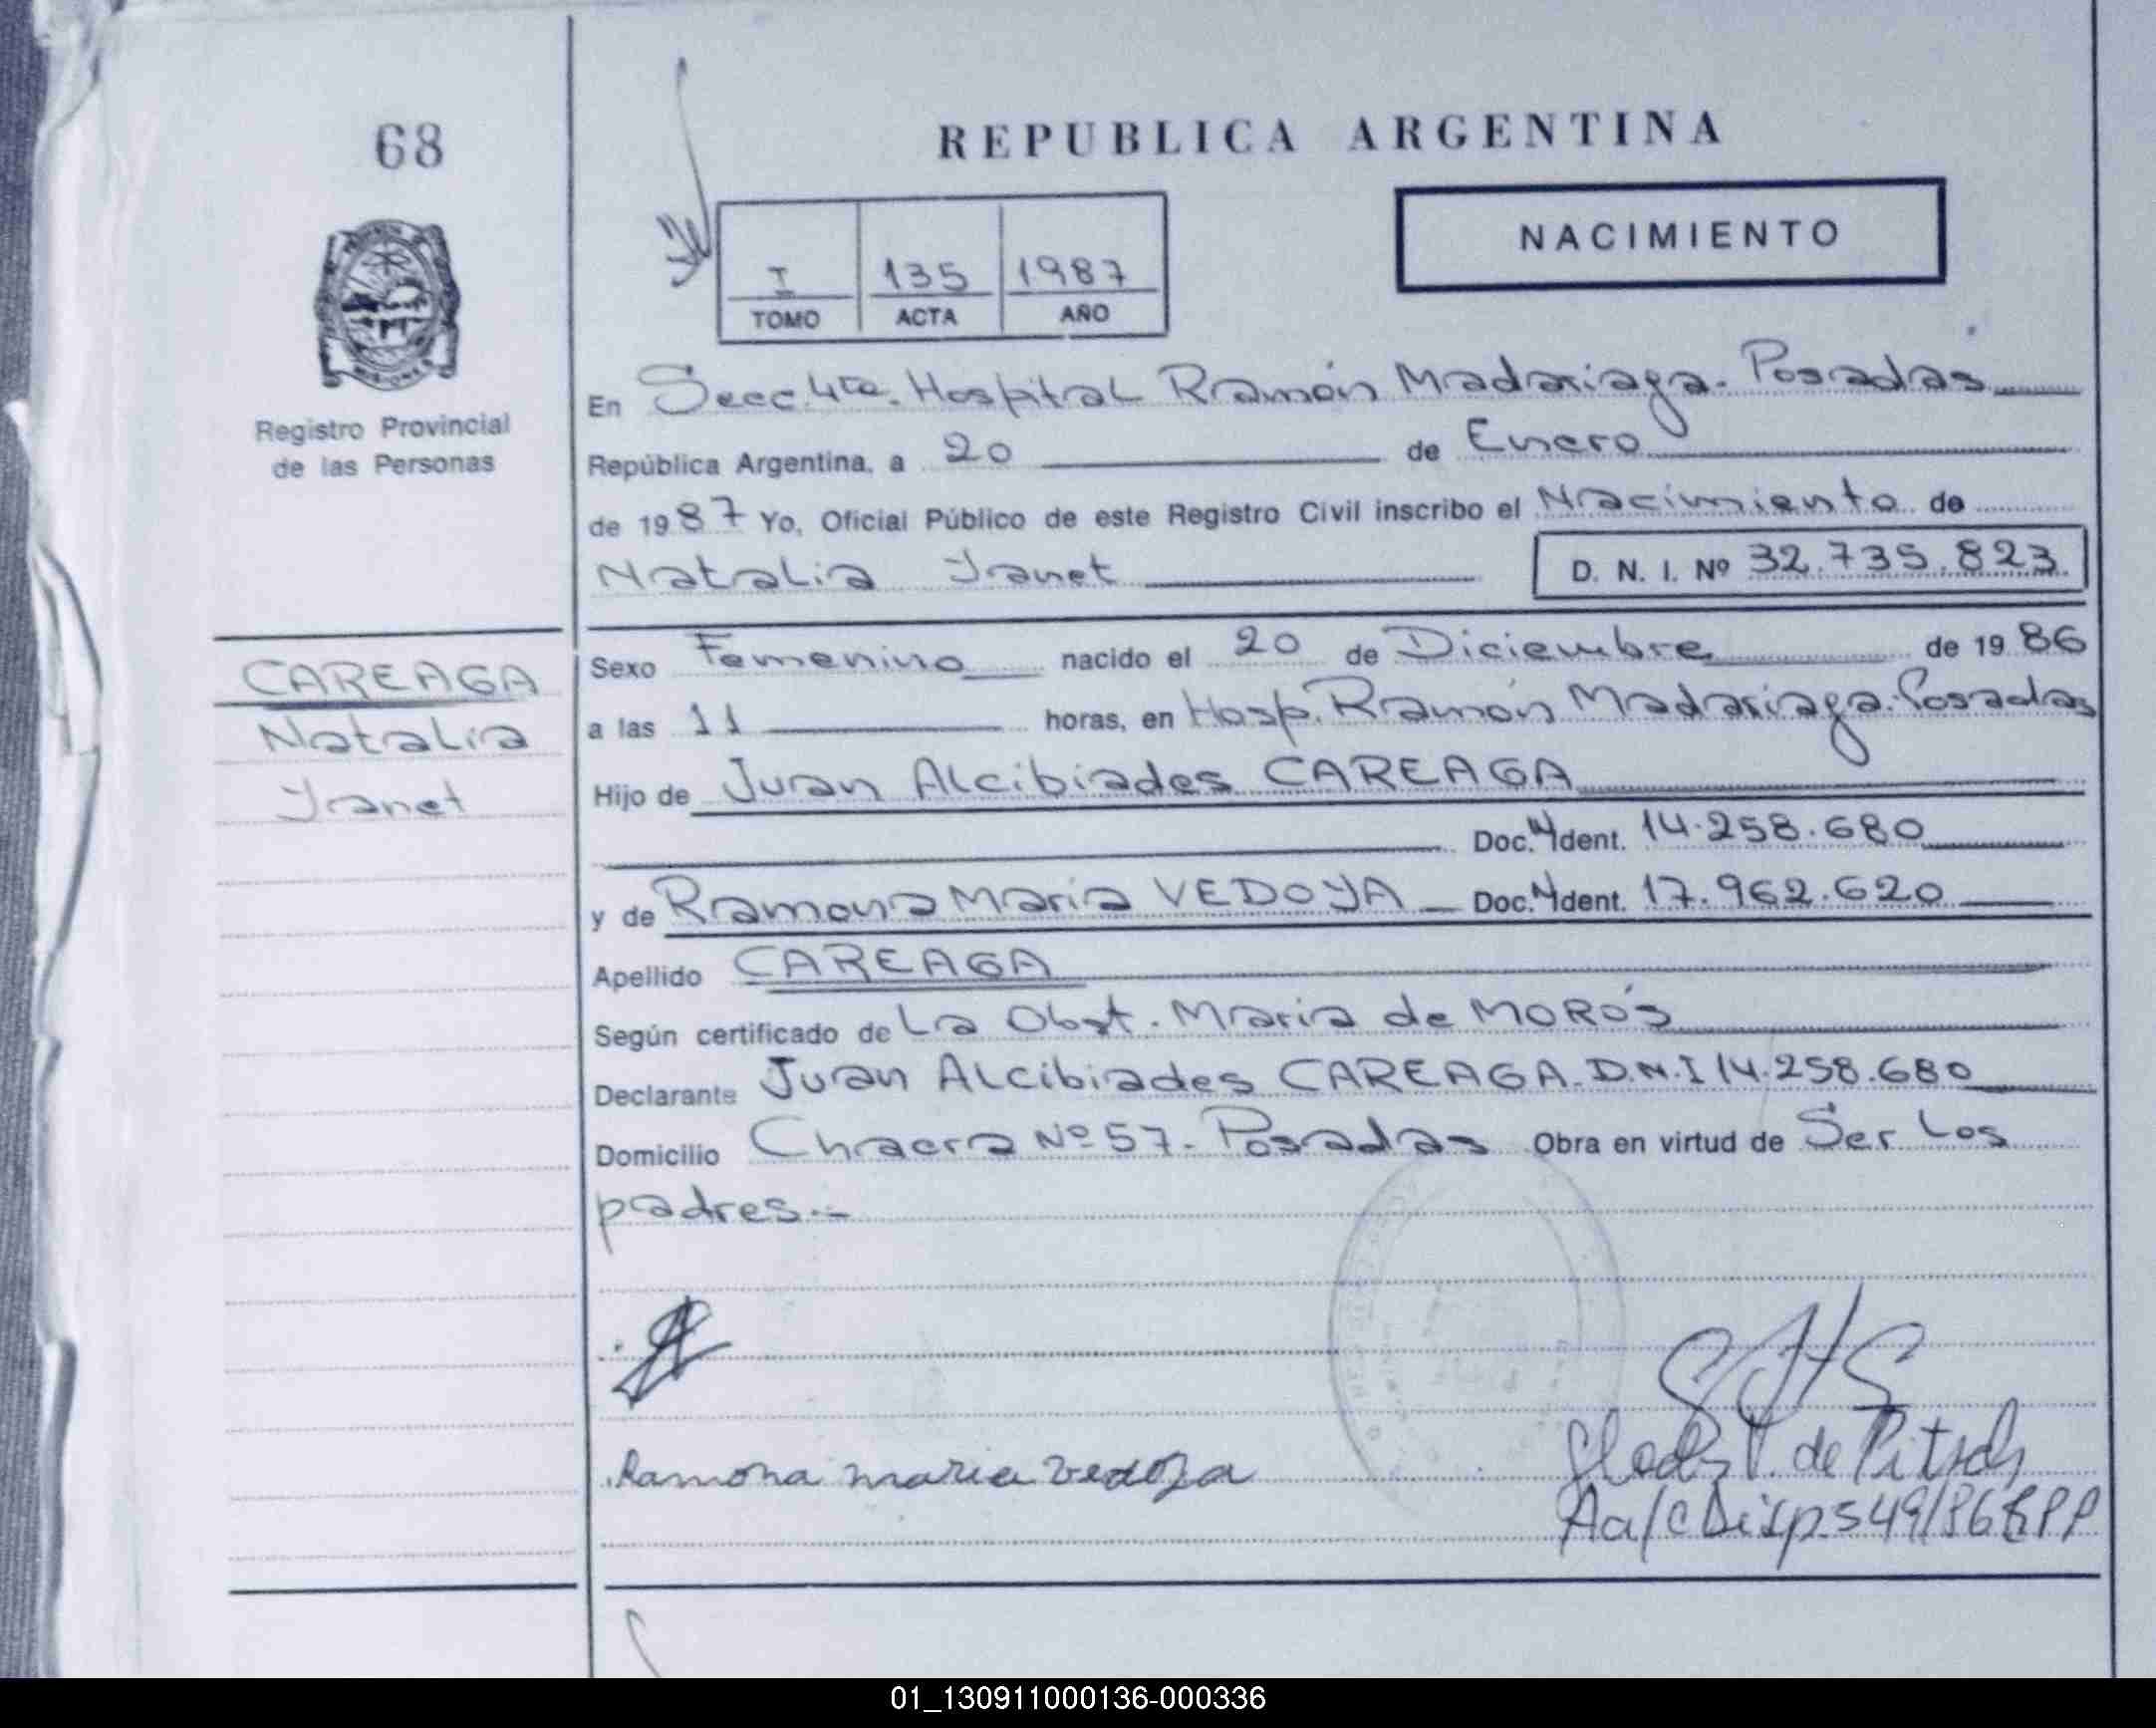 68
REPUBLICA ARGENTINA
NACIMIENTO
I 135 1987
TOMO ACTA AÑO
Registro Provincial
de las Personas
En Secc 4ta. Hospital Ramón Madariaga. Posadas
República Argentina, a 20 de Enero
de 1987 Yo, Oficial Público de este Registro Civil inscribo el Nacimiento de
Natalia Yanet D. N. I. Nº 32.735.823
CAREAGA
Natalia
Yanet
Sexo Femenino nacido el 20 de Diciembre de 1986
a las 11 horas, en Hosp. Ramón Madariaga. Posadas
Hijo de Juan Alcibiades CAREAGA
Doc. Ident. 14.258.680
y de Ramona Maria VEDOYA Doc. Ident. 17.962.620
Apellido CAREAGA
Según certificado de La Obst. Maria de MORÓS
Declarante Juan Alcibiades CAREAGA. D.N.I 14.258.680
Domicilio Chacra Nº 57 - Posadas Obra en virtud de Ser Los
padres.-
Ramona maria vedoya
de Pitsch
Aa/c Disp 549/86 RPP
01_130911000136-000336